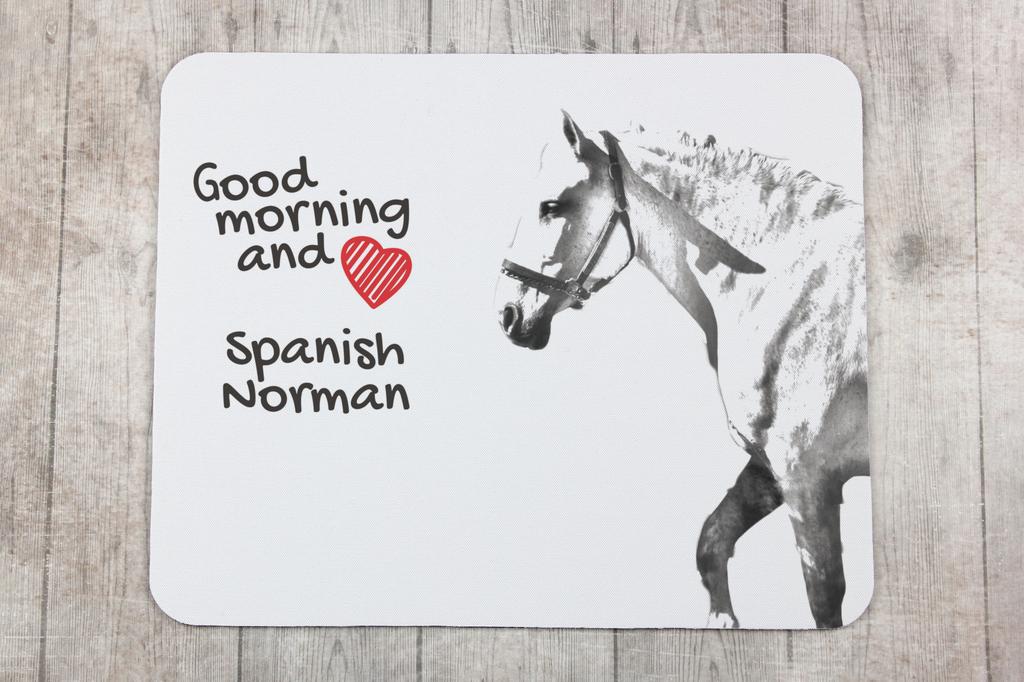 Good
morning
and
Spanish
Norman